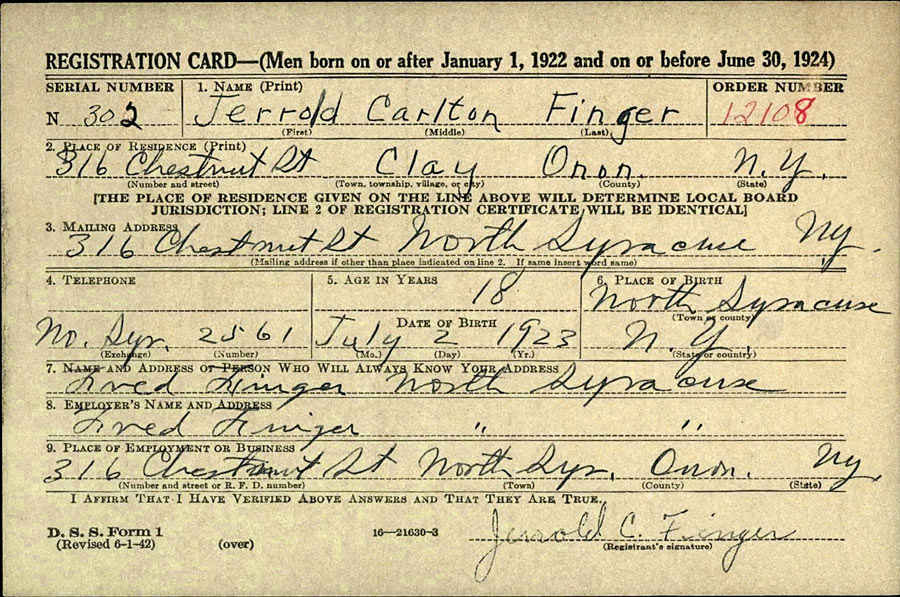 REGISTRATION CARD—(Men born on or after January 1, 1922 and on or before June 30, 1924)
SERIAL NUMBER 1. NAME (Print) ORDER NUMBER
N 302 Jerrold Carlton Finger 12108
(First) (Middle) (Last)
2. PLACE OF RESIDENCE (Print)
316 Chestnut St Clay Onon. N.Y.
(Number and street) (Town, township, village, or city) (County) (State)
[THE PLACE OF RESIDENCE GIVEN ON THE LINE ABOVE WILL DETERMINE LOCAL BOARD
JURISDICTION; LINE 2 OF REGISTRATION CERTIFICATE WILL BE IDENTICAL]
3. MAILING ADDRESS
316 Chestnut St North Syracuse Ny.
(Mailing address if other than place indicated on line 2. If same insert word same)
4. TELEPHONE 5. AGE IN YEARS 6. PLACE OF BIRTH
18 North Syracuse
(Town or county)
DATE OF BIRTH
No. Syr. 2561 July 2 1923 N.Y.
(Exchange) (Number) (Mo.) (Day) (Yr.) (State or country)
7. NAME AND ADDRESS OF PERSON WHO WILL ALWAYS KNOW YOUR ADDRESS
Fred Finger North Syracuse
8. EMPLOYER'S NAME AND ADDRESS
Fred Finger " "
9. PLACE OF EMPLOYMENT OR BUSINESS
316 Chestnut St North Syr. Onon. Ny.
(Number and street or R. F. D. number) (Town) (County) (State)
I AFFIRM THAT I HAVE VERIFIED ABOVE ANSWERS AND THAT THEY ARE TRUE.
D. S. S. Form 1 16—21630-3 Jerrold C. Finger
(Revised 6-1-42) (over) (Registrant's signature)